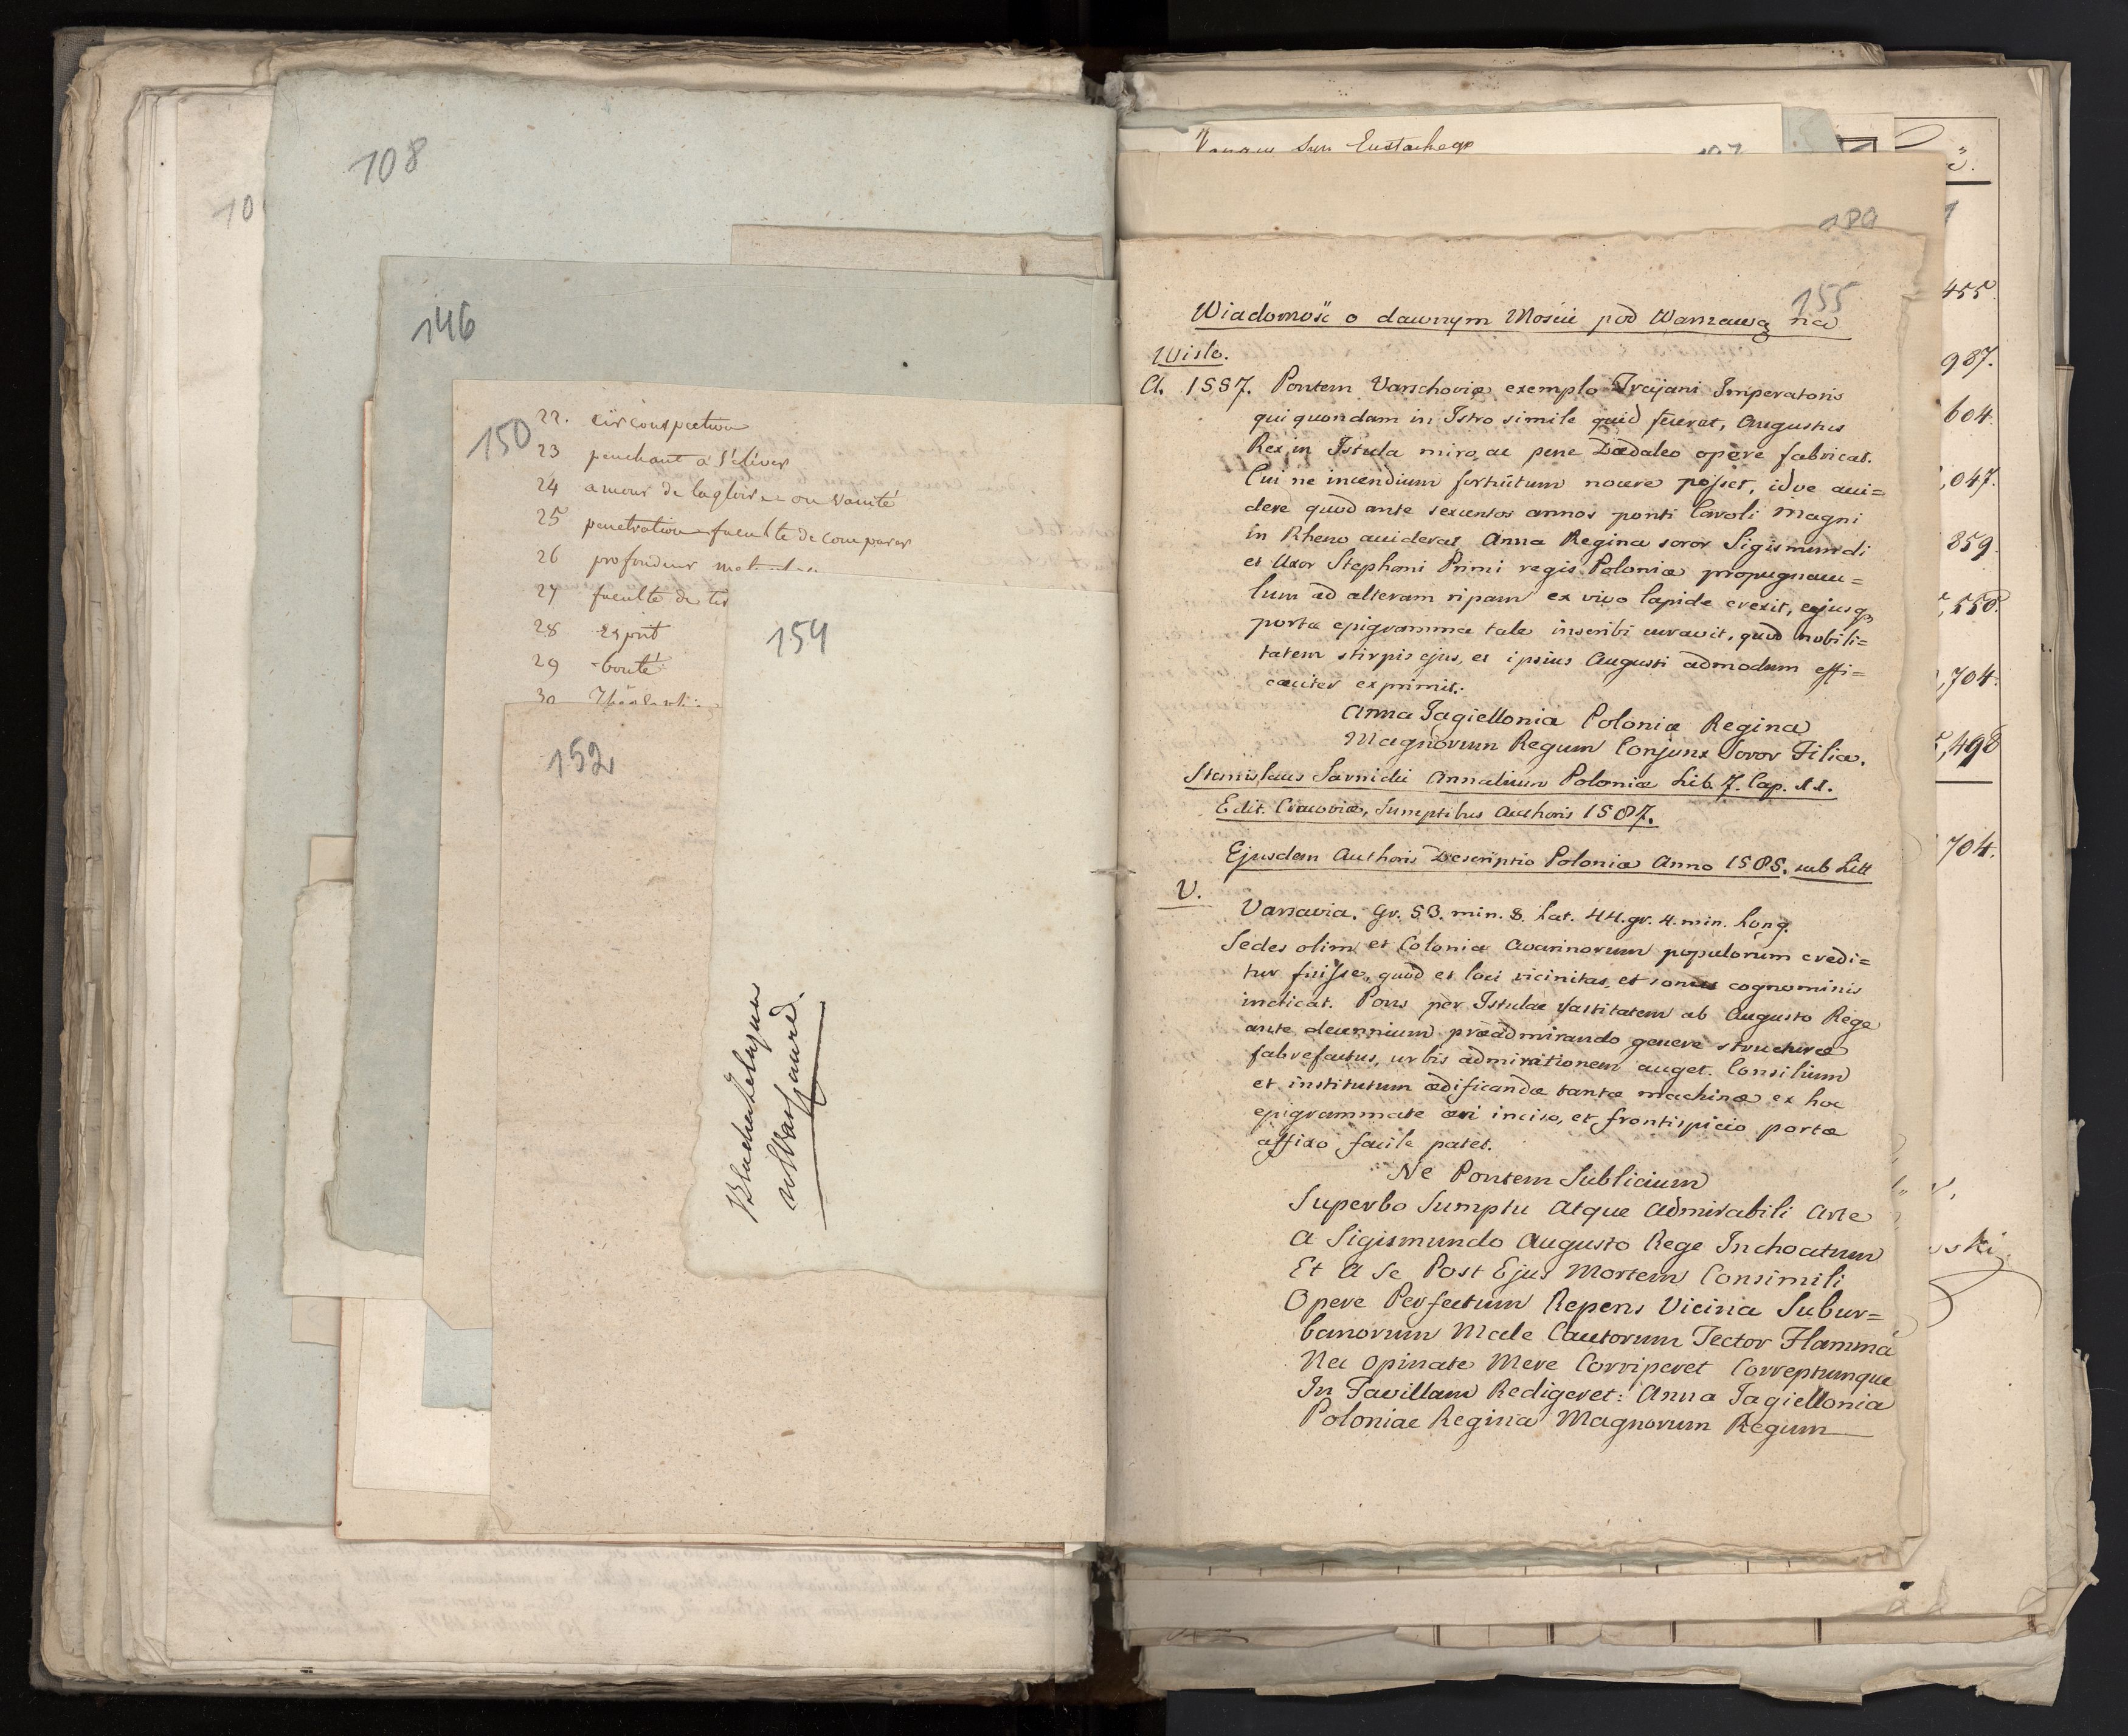 108
10
146
150
22. circonspection
23 penchant à s'élever
24 amour de la gloire ou vanité
25 penetration faculté de comparer
26 profondeur
27 faculté de
28 Esprit
29 bonté
30
154
152
Eustachego
189
155
Wiadomość o dawnym Moście pod Warszawą na
Wisle.
A. 1557. Pontem Varschoviæ exemplo Trajani Imperatoris
qui quondam in Istro simile quid fecerat, Augustus
Rex in Istula miro, ac pene Dædaleo opere fabricat.
Cui ne incendium fortuitum nocere posset, idve acci=
dere quod ante sexcentos annos ponti Caroli Magni
in Rheno acciderat Anna Regina soror Sigismundi
et Uxor Stephani Primi regis Poloniæ propugnacu=
lum ad alteram ripam ex vivo lapide erexit, ejusq3
portæ epigramma tale inscribi curavit, quod nobili=
tatem stirpis ejus, et ipsius Augusti admodum effi=
caciter exprimit.
Anna Jagiellonia Poloniæ Regina
Magnorum Regum Conjunx Soror Filia.
Stanislaus Sarnicki Annalium Poloniæ Lib. 7. Cap. 11.
Edit. Cracoviæ, Sumptibus Authoris 1587.
Ejusdem Authoris Descriptio Poloniæ Anno 1585. sub Litt
V.
Varsavia. Gr. 53. min. 8. Lat. 44. gr. 4. min. Long.
Sedes olim et Colonia Avarinorum populorum credi=
tur fuisse, quod et loci vicinitas, et sonus cognominis
indicat. Pons per Istulae vastitatem ab Augusto Rege
ante decennium præadmirando genere structuræ
fabrefactus, urbis admirationem auget. Consilium
et institutum ædificandæ tantæ machinæ ex hoc
epigrammate æri inciso, et frontispicio portæ
affixo facile patet.
Ne Pontem Sublicium
Superbo Sumptu Atque Admirabili Arte
A Sigismundo Augusto Rege Inchoatum
Et A Se Post Ejus Mortem Consimili
Opere Perfectum Repens Vicina Subur=
banorum Male Cautorum Tector Flamma
Nec Opinate Mere Corriperet Correptumque
In Favillam Redigeret: Anna Jagiellonia
Poloniae Regina Magnorum Regum
455.
987.
604.
,047.
859.
,550.
,704.
,498
704.